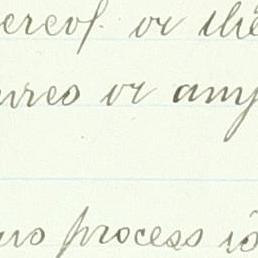 ereof or the
ures or any
process is